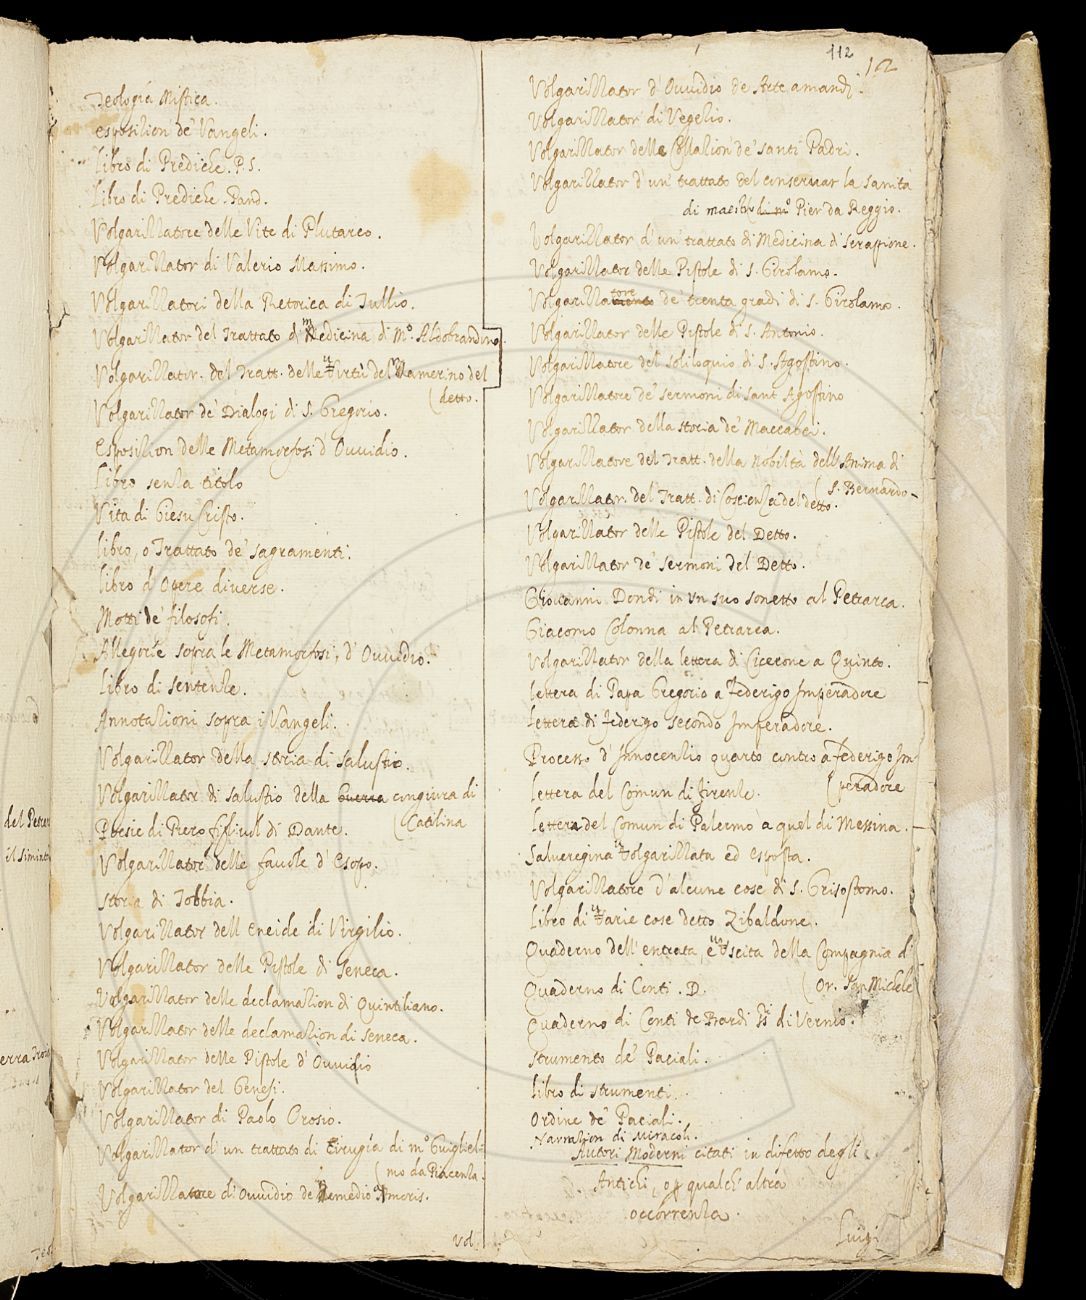 112
12
Teologia Mistica.
Esposition de' Vangeli.
Libro di Prediche. P. S.
Libro di Prediche. Band.
Volgarizzatore delle Vite di Plutarco.
Volgarizzator di Valerio Massimo.
Volgarizzatori della Retorica di Tullio.
Volgarizzator del Trattato di Medicina di Mo. Aldobrandino.
Volgarizzator. del Tratt. delle Virtù del Ramerino del
(detto.
Volgarizzator de' Dialogi di S. Gregorio.
Esposition delle Metamorfosi d'Ouuidio.
Libro senza titolo
Vita di Giesu Cristo.
Libro, o Trattato de' sagramenti.
Libro d'Opere diuerse.
Motti de' filosofi.
Allegorie sopra le Metamorfosi, d'Ouuidio.
Libro di sentenze.
Annotazioni sopra i Vangeli.
Volgarizzator della storia di Salustio.
Volgarizzator di Salustio della Guerra congiura di
(Catilina
Poesie di Piero figliuol di Dante.
Volgarizzator delle fauole d'Esopo.
Storia di Tobbia.
Volgarizzator dell Eneide di Virgilio.
Volgarizzator delle Pistole di Seneca.
Volgarizzator delle declamazion di Quintiliano.
Volgarizzator delle declamazion di Seneca.
Volgarizzator delle Pistole d'Ouuidio
Volgarizzator del Genesi.
Volgarizzator di Paolo Orosio.
Volgarizzator d'un trattato di Cirugia di mo. Guigliel-
(mo da Piacenza.
Volgarizzatore di Ouuidio de Remedio Amoris.
Vol.
Volgarizzator d'Ouuidio de Arte amandi.
Volgarizzator di Vegezio.
Volgarizzator delle Collazion de' santi Padri.
Volgarizzator d'un' trattato del conseruar la sanità
di maestro di mo. Pier da Reggio.
Volgarizzator d'un' trattato di Medicina di Serapione.
Volgarizzator delle Pistole di S. Girolamo.
Volgarizzatore de' trenta gradi di S. Girolamo.
Volgarizzator delle Pistole di S. Antonio.
Volgarizzatore del soliloquio di S. Agostino.
Volgarizzatore de' sermoni di sant Agostino
Volgarizzator della storia de' Maccabei.
Volgarizzatore del Tratt. della nobiltà dell'Anima di
(S. Bernardo
Volgarizzator. del Tratt. di Coscienza del detto.
Volgarizzator delle Pistole del Detto.
Volgarizzator de' sermoni del Detto.
Giouanni Dondi in un suo sonetto al Petrarca.
Giacomo Colonna al Petrarca.
Volgarizzator della lettera di Cicerone a Quinto.
Lettera di Papa Gregorio a Federigo Imperadore
Lettera di Federigo secondo Imperadore.
Processo d'Innocenzio quarto contro a Federigo Im
(peradore
Lettera del Comun di Firenze.
Lettera del Comun di Palermo a quel di Messina.
Salueregina Volgarizzata ed esposta.
Volgarizzatore d'alcune cose di S. Grisostomo.
Libro di Varie cose detto Zibaldone.
Quaderno dell'entrata, e Uscita della Compagnia d'
(Or. San Michele
Quaderno di Conti. D.
Quaderno di Conti de Bardi di Vernio.
Strumento de' Paciali.
Libro di strumenti.
Ordine de' Paciali.
Narrazion di Miracoli.
Autori Moderni citati in difetto degli
Antichi, o p qualch' altra
occorrenza.
Luigi